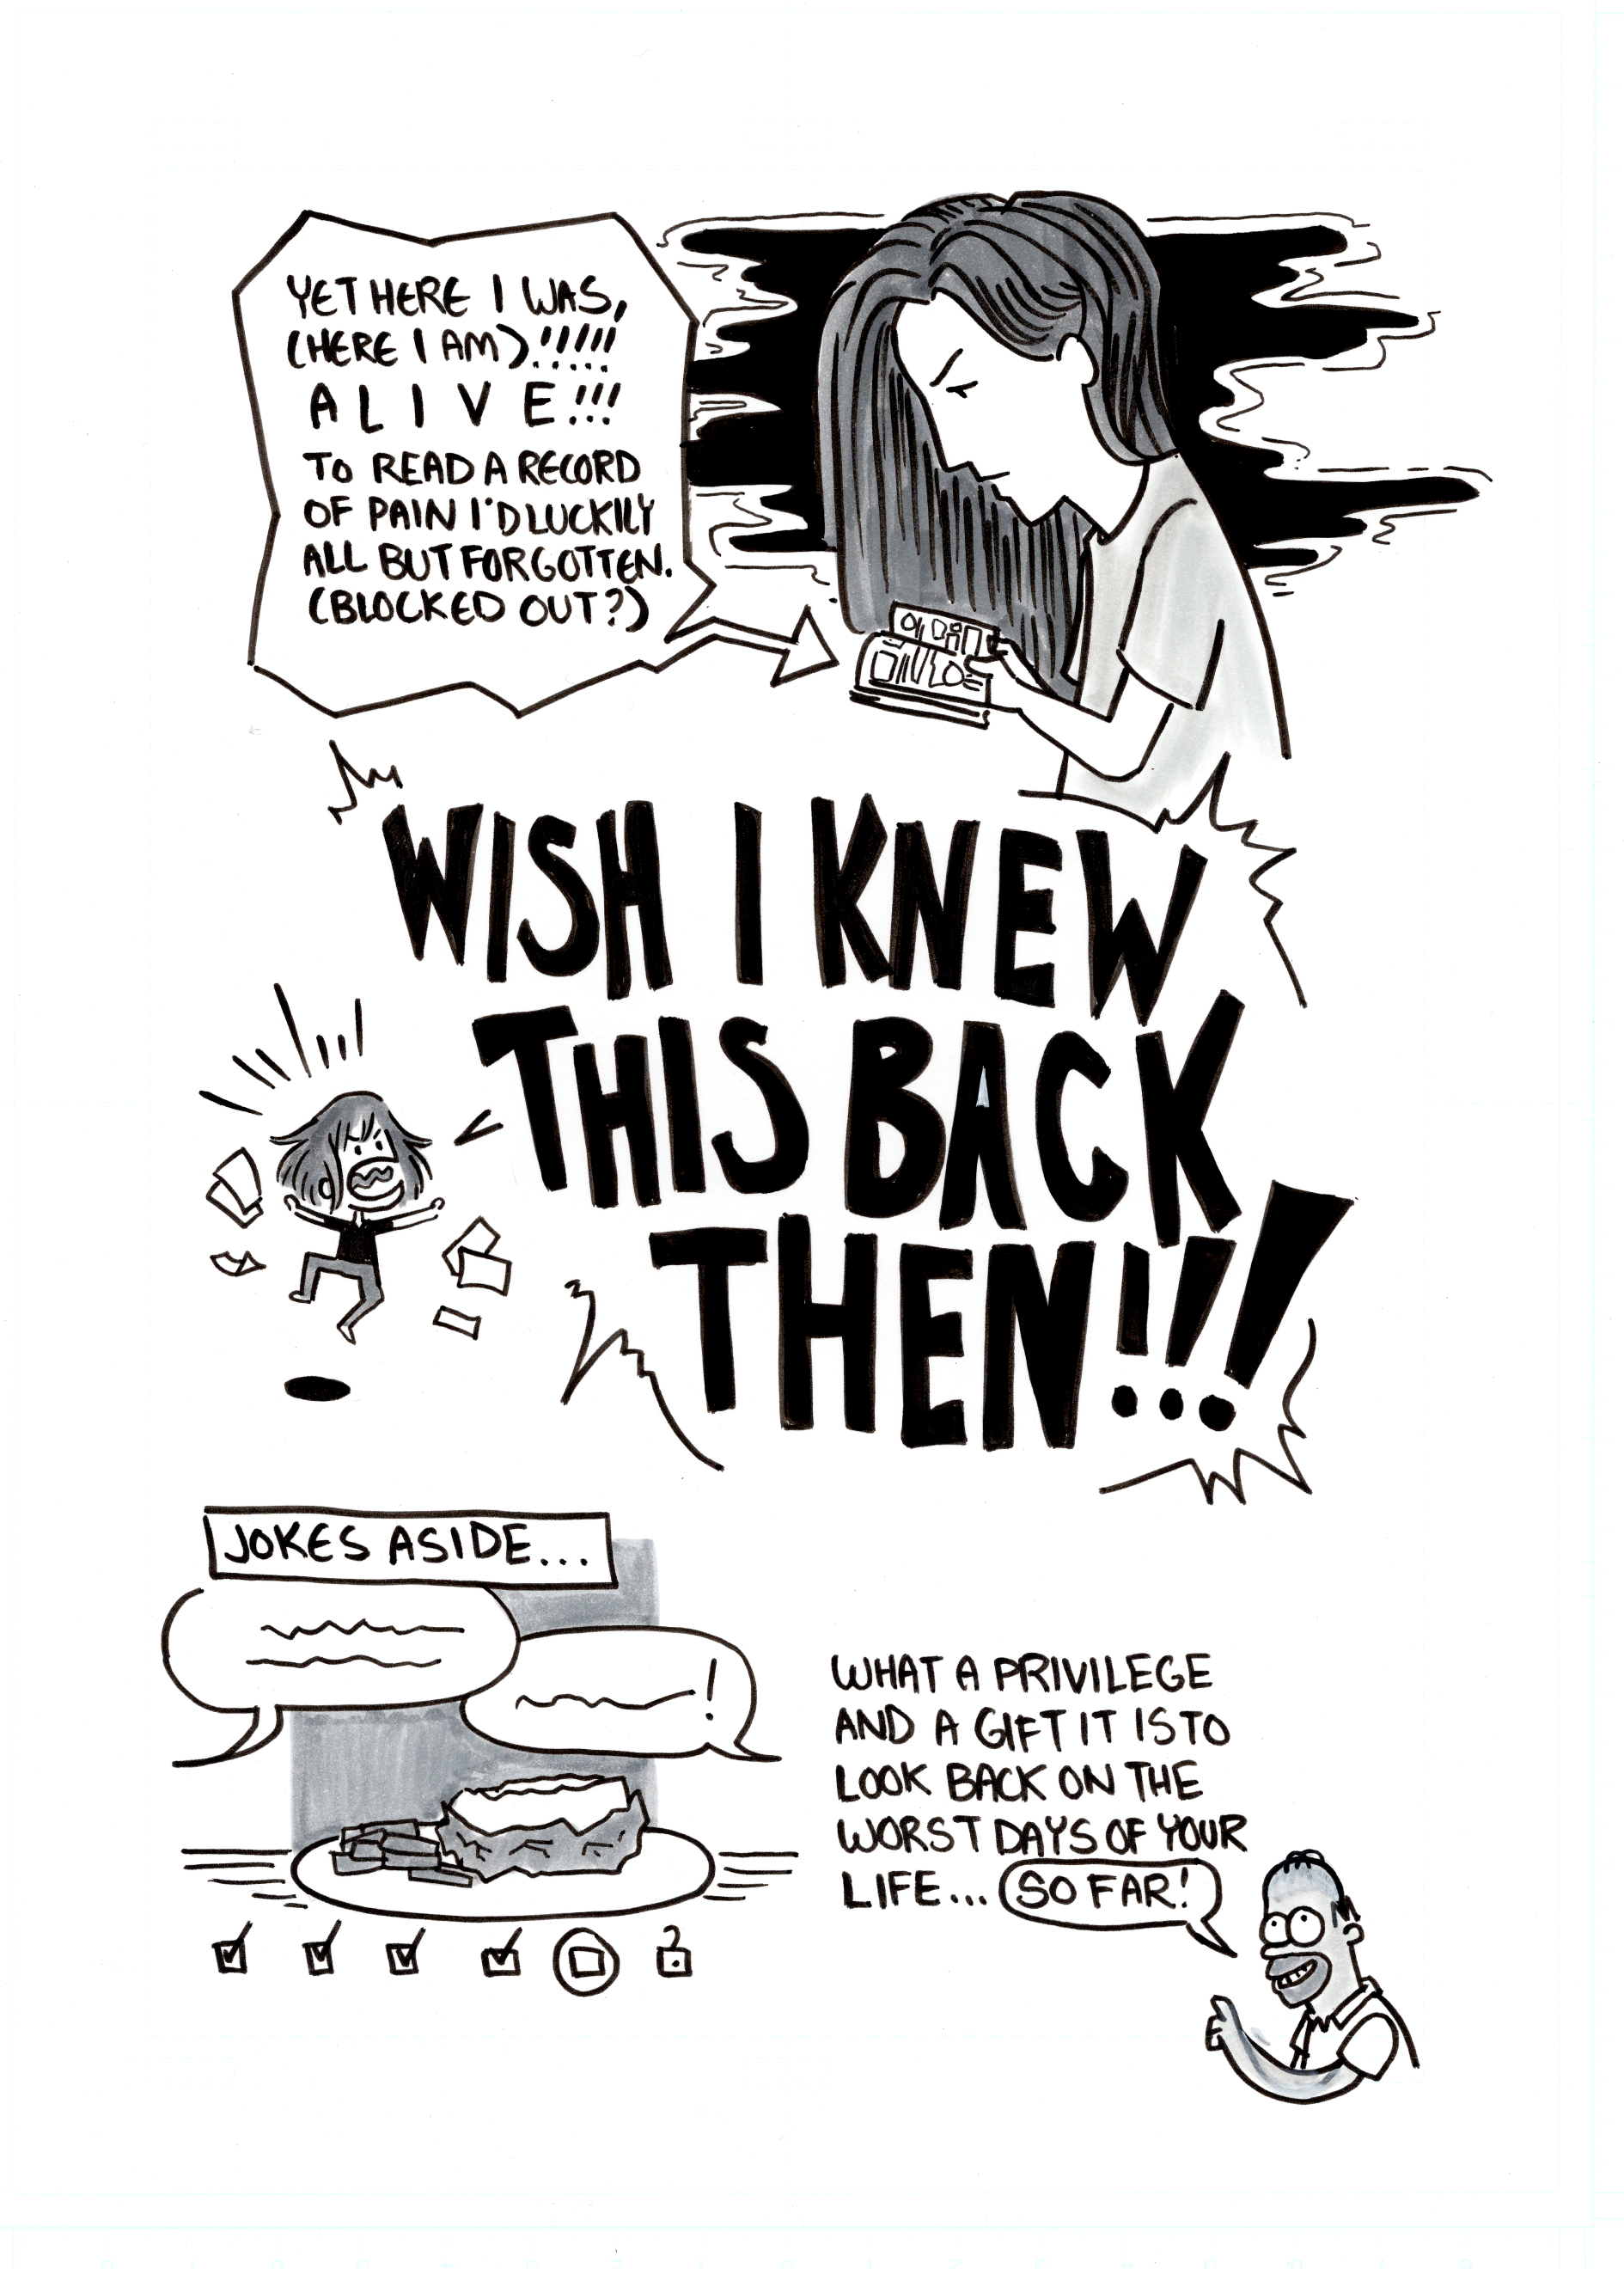 YET HERE I WAS,
(HERE I AM)!!!!!!
ALIVE!!!
TO READ A RECORD
OF PAIN I'D LUCKILY
ALL BUT FORGOTTEN.
(BLOCKED OUT?)
WISH I KNEW
THIS BACK
THEN!!!
JOKES ASIDE...
!
WHAT A PRIVILEGE
AND A GIFT IT IS TO
LOOK BACK ON THE
WORST DAYS OF YOUR
LIFE... SO FAR!
?